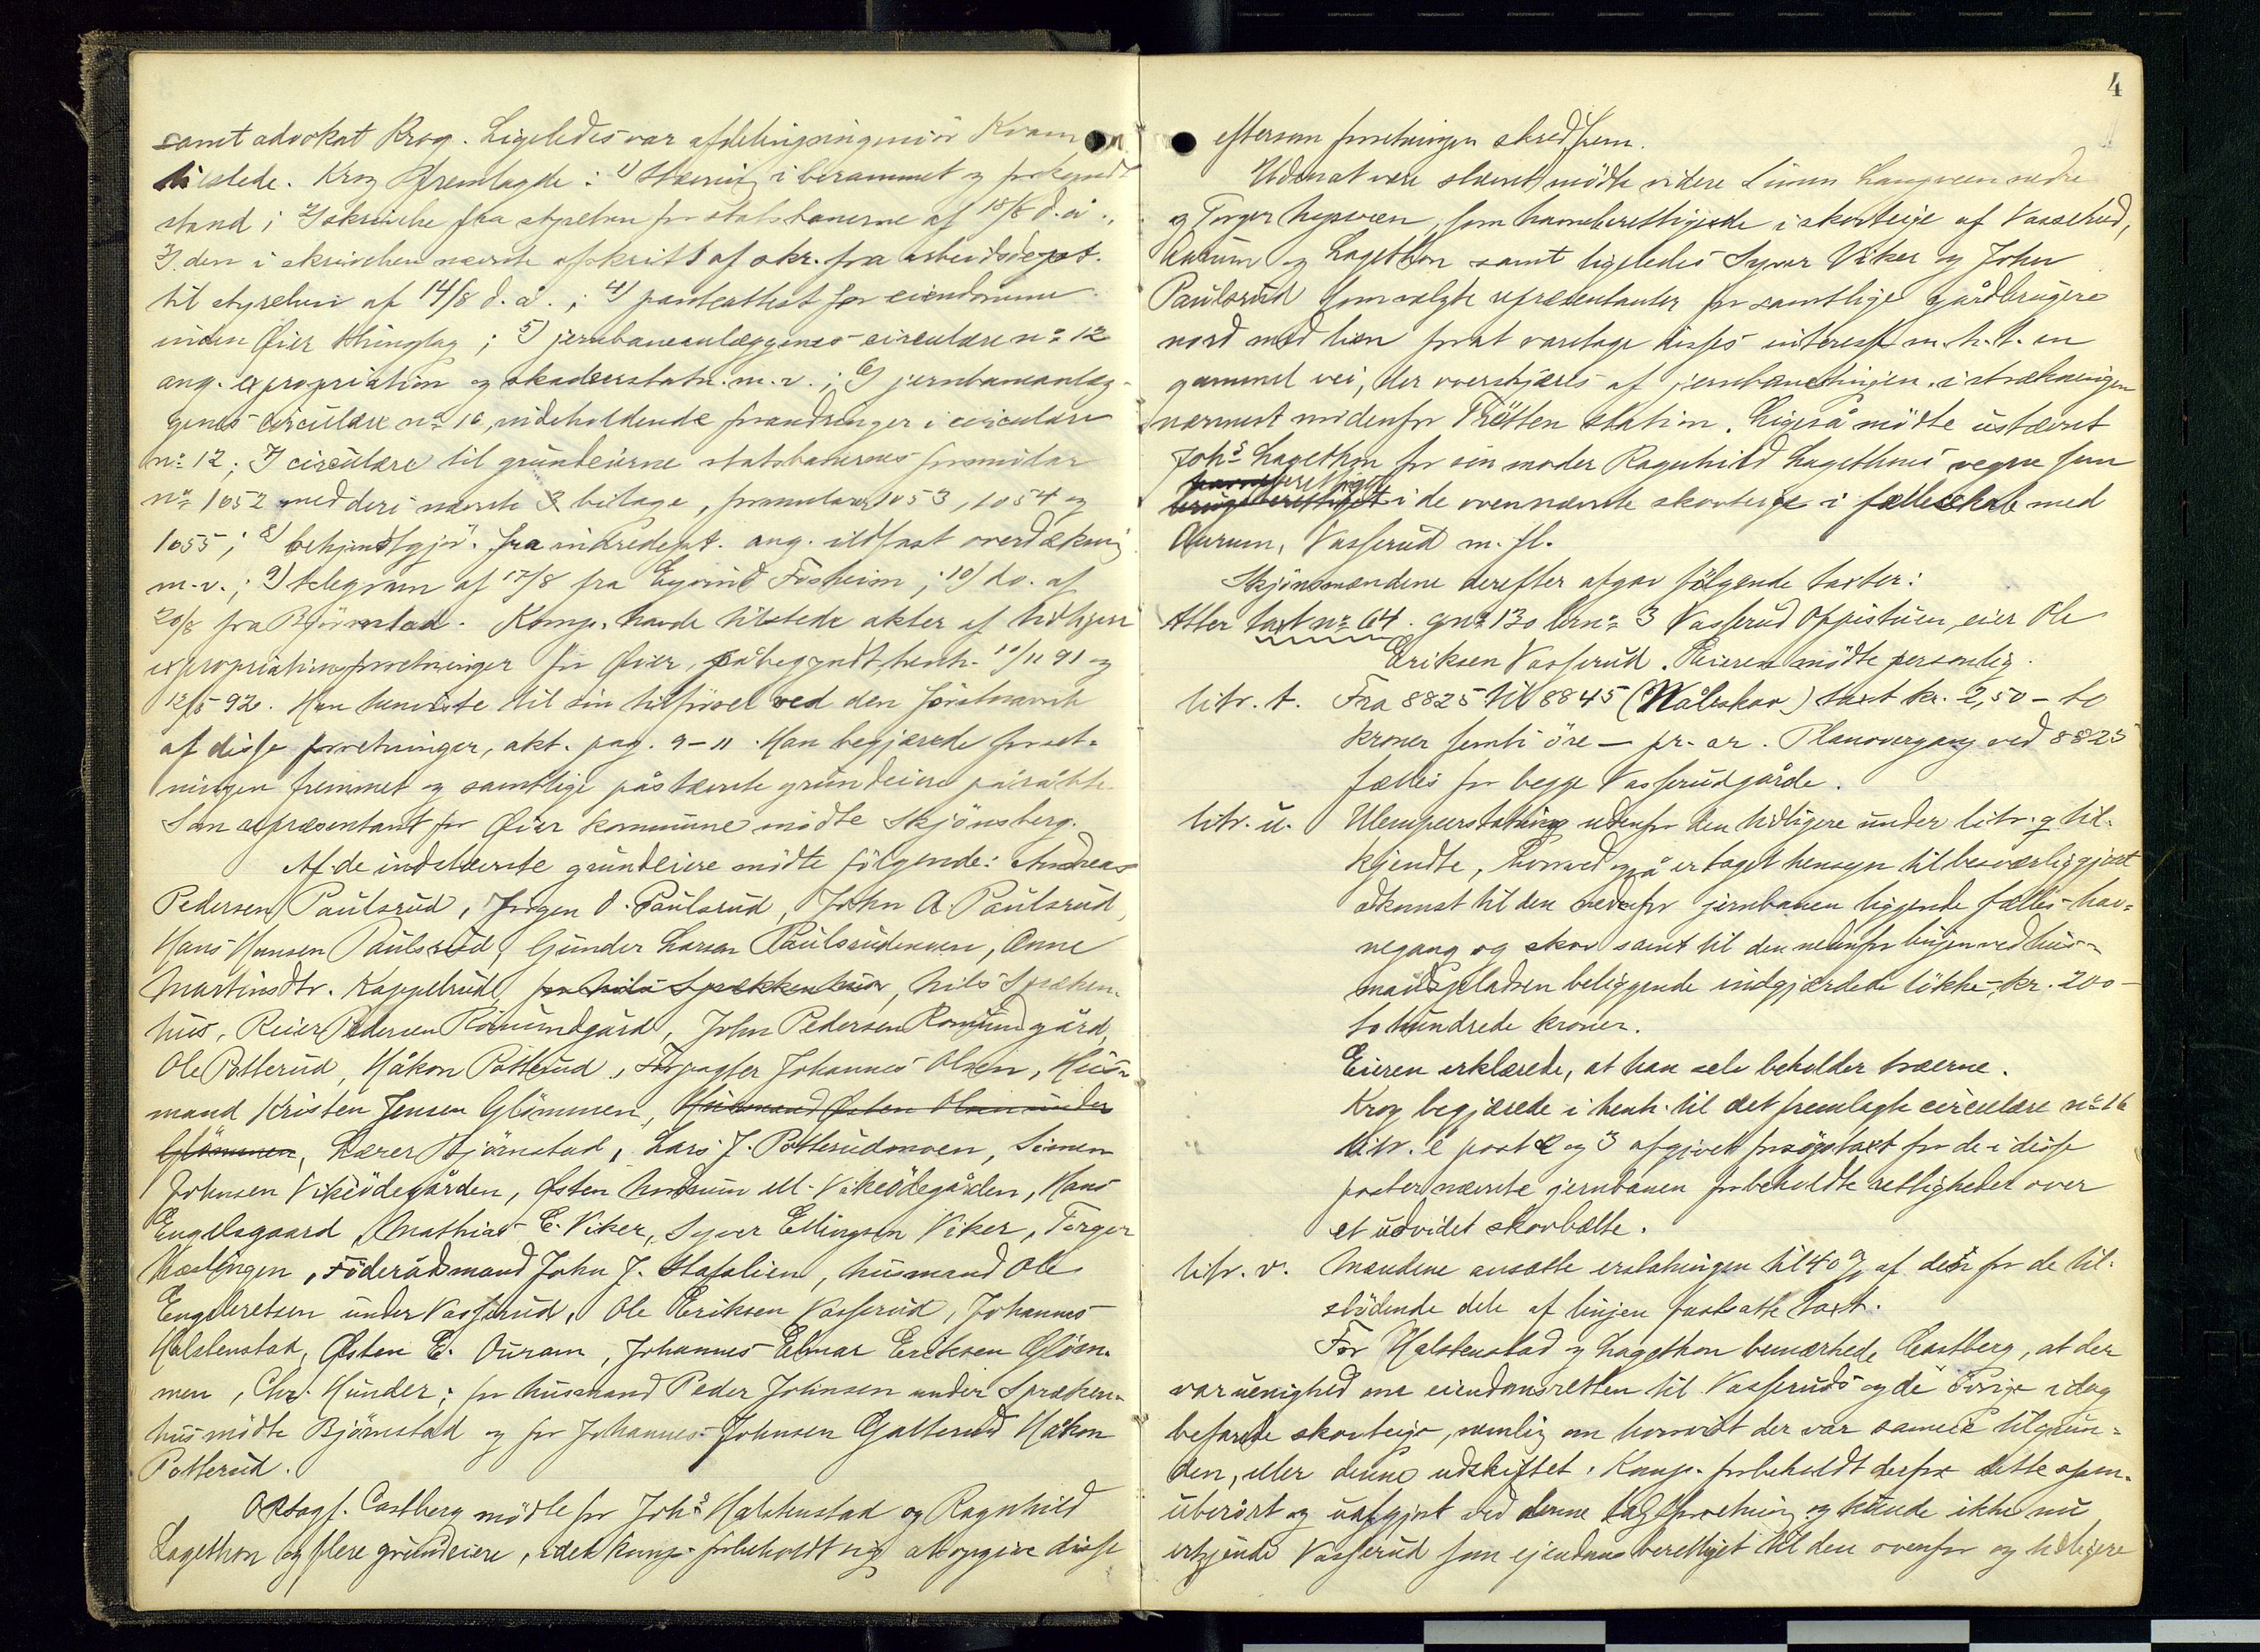 samt advokat Krog. Ligeledes var afdelingsingeniör Kvam
tilstede. Krog fremlagde: 1) Stævning i berammet og forkyndt
stand; 2) skrivelse fra styrelsen for statsbanerne af 18/8 d.å.,
3) den i skrivelsen nævnte afskrift af skr. fra arbeidsdept.
til styrelsen af 14/8 d.å.; 4) panteattest for eiendomme
inden Öier thinglag; 5) jernbaneanlæggenes circulære no 12
ang. expropriation og skadeerstatn. m.v.; 6) jernbaneanlæg-
genes circulære no 16, indeholdende forandringer i circulære
no 12; 7) circulære til grundeierne statsbanernes formular
no 1052 med deri nævnte 3 beilage, formularer 1053, 1054 og
1055; 8) bekjendtgjör. fra indredept. ang. ildfast overdækning
m.v.; 9) telegram af 17/8 fra Eyvind Fosheim; 10) do. af
20/8 fra Björnstad. Komp. havde tilstede akter af tidligere
expropriationsforretninger for Öier, påbegyndt henh. 10/11 91 og
12/5 92. Han henviste til sin tilförsel ved den förstnævnte
af disse forretninger, akt. pag. 9-11. Han begjærede forret-
ningen fremmet og samtlige påstævnte grundeiere påråbt.
Som repræsentant for Öier kommune mödte Skjönsberg.
Af de indstævnte grundeiere mödte fölgende: Andreas
Pedersen Paulsrud, Jörgen O. Paulsrud, John A. Paulsrud,
Hans Hansen Paulsrud, Gunder Larsen Paulsrudmoen, Anne
Martinsdtr. Kappelrud, for Nils Sprækkenhus, Nils Spræken-
hus, Reier Pedersen Romundgård, John Pedersen Romundgård,
Ole Potterud, Håkon Potterud, Forpagter Johannes Olsen, Hus-
mand Kristen Jensen Glömmen, Husmand Østen Olsen under
Glömmen, Lærer Björnstad, Lars J. Potterudmoen, Simen
Johnsen Vikeödegården, Østen Amundsen Vikeödegården, Hans
Engelsgaard, Mathias E. Viker, Syver Ellingsen Viker, Torger
Kæstingen, Föderådsmand John J. Stafslien, husmand Ole
Engebretsen under Vasserud, Ole Eriksen Vasserud, Johannes
Halstenstad, Østen E. Aurum, Johannes Elmar Eriksen Glöm-
men, Chr. Hunder; for husmand Peder Johnsen under Spræken-
hus mödte Björnstad og for Johannes Johnsen Galterud Håkon
Potterud.
O.r.sagf. Castberg mödte for Johs Halstenstad og Ragnhild
Lagethon og flere grundeiere, idet komp. forbeholdt sig at opgive disse
4
eftersom forretningen skred frem.
Uden at være stævnt mödte videre Simen Langveen nedre
og Torger Nysveen, som havneberettigede i skovteige af Vasserud,
Aurum og Lagethon samt ligeledes Syver Viker og John
Paulsrud som valgte repræsentanter for samtlige gårdbrugere
nord med lien for at varetage disses interesse m.h.t. en
gammel vei, der overskjæres af jernbanelinjen i strækningen
nærmest nordenfor Tretten station. Ligeså mödte ustævnt
Johs Lagethon for sin moder Ragnhild Lagethons vegne som
havneberettiget
brugsberettiget i de ovennævnte skovteige i fælleskab med
Aurum, Vasserud m.fl.
Skjönsmændene derefter afgav fölgende taxter:
Atter taxt no 64. gno 130 brno 3 Vasserud Oppistuen, eier Ole
Eriksen Vasserud. Eieren mödte personlig.
litr. t. Fra 8825 til 8845 (Nåleskov) taxt kr. 2,50 - to
kroner femti öre - pr. ar. Planovergang ved 8825
fælles for begge Vasserudgårde.
litr. u. Ulempeerstatning udenfor den tidligere under litr. q til-
kjendte, hvorved også er taget hensyn til besværliggjort
adkomst til den nedenfor jernbanen liggende fælles-hav-
negang og skov samt til den nedenfor linjen ved hus-
mandspladsen beliggende indgjærdede lökke, kr. 200 -
to hundrede kroner.
Eieren erklærede, at han selv beholder træerne.
Krog begjærede i henh. til det fremlagte circulære no 16
litr. e post 2 og 3 afgivet forsögstaxt for de i disse
poster nævnte jernbanen forbeholdte rettigheder over
et udvidet skovbælte.
litr. v. Mændene ansatte erstatningen til 40 % af den for de til-
stödende dele af linjen fastsatte taxt.
For Halstenstad og Lagethon bemærkede Castberg, at der
var uenighed om eiendomsretten til Vasseruds og de övrige idag
befarede skovteige, nemlig om hvorvidt der var sameie til grun-
den, eller denne udskiftet. Komp. forbeholdt derfor dette spm.
uberört og uafgjort ved denne forretning og kunde ikke nu
erkjende Vasserud som ejendomsberettiget til den ovenfor og tidligere